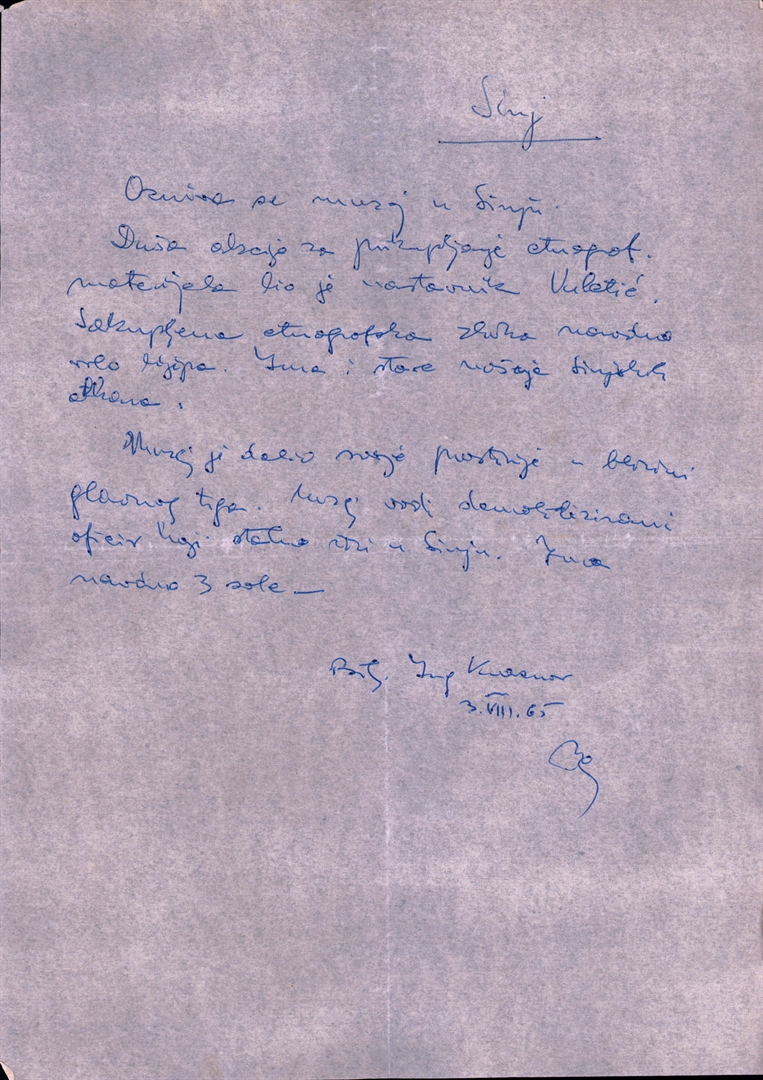 Sinj
Osniva se muzej u Sinju.
Duša akcije za prikupljanje etnograf.
materijala bio je nastavnik Vuletić.
Sakupljena etnografska zbirka navodno
vrlo lijepa. Ima i stare nošnje Sinjskih
alkara.
Muzej je dobio svoje prostorije u blizini
glavnog trga. Muzej vodi demobilizirani
oficir koji stalno živi u Sinju. Ima
navodno 3 sobe —
Ing
3.VIII.65